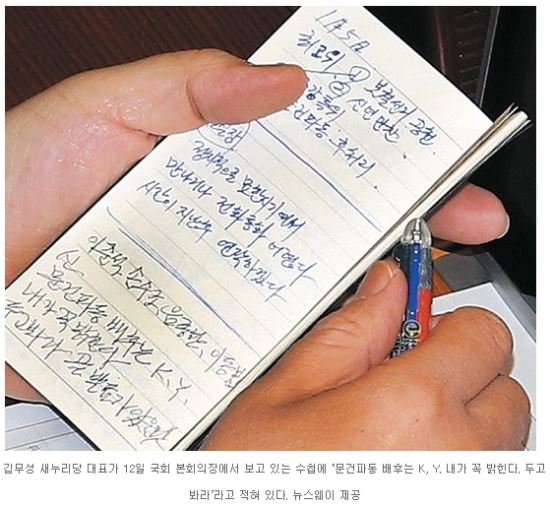 1月5日
최고위 ① 보궐선거 공천
② 신년 만찬
문건파동. 후처리.
실장
정례적으로 보았지기 에서
만나거나 전화통화 어렵다
시간이 지난후 연락하겠다
이준석, 손수조, 음종환, 이동빈
문건파동 배후는 K, Y.
내가 꼭 밝힌다
두고봐라 곧 발표가 있을것
김무성 새누리당 대표가 12일 국회 본회의장에서 보고 있는 수첩에 "문건파동 배후는 K, Y. 내가 꼭 밝힌다. 두고
봐라"라고 적혀 있다. 뉴스웨이 제공